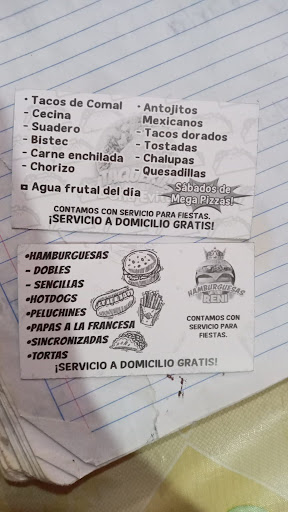 · Tacos de Comal
- Cecina
- Suadero
- Bistec
- Carne enchilada
- Chorizo
Agua frutal del día
· Antojitos
Mexicanos
- Tacos dorados
- Tostadas
- Chalupas
- Quesadillas
Sábados de
Mega Pizzas!
CONTAMOS CON SERVICIO PARA FIESTAS.
¡SERVICIO A DOMICILIO GRATIS!
•HAMBURGUESAS
- DOBLES
- SENCILLAS
•HOTDOGS
•PELUCHINES
•PAPAS A LA FRANCESA
•SINCRONIZADAS
•TORTAS
HAMBURGUESAS
RENI
CONTAMOS CON
SERVICIO PARA
FIESTAS.
¡SERVICIO A DOMICILIO GRATIS!